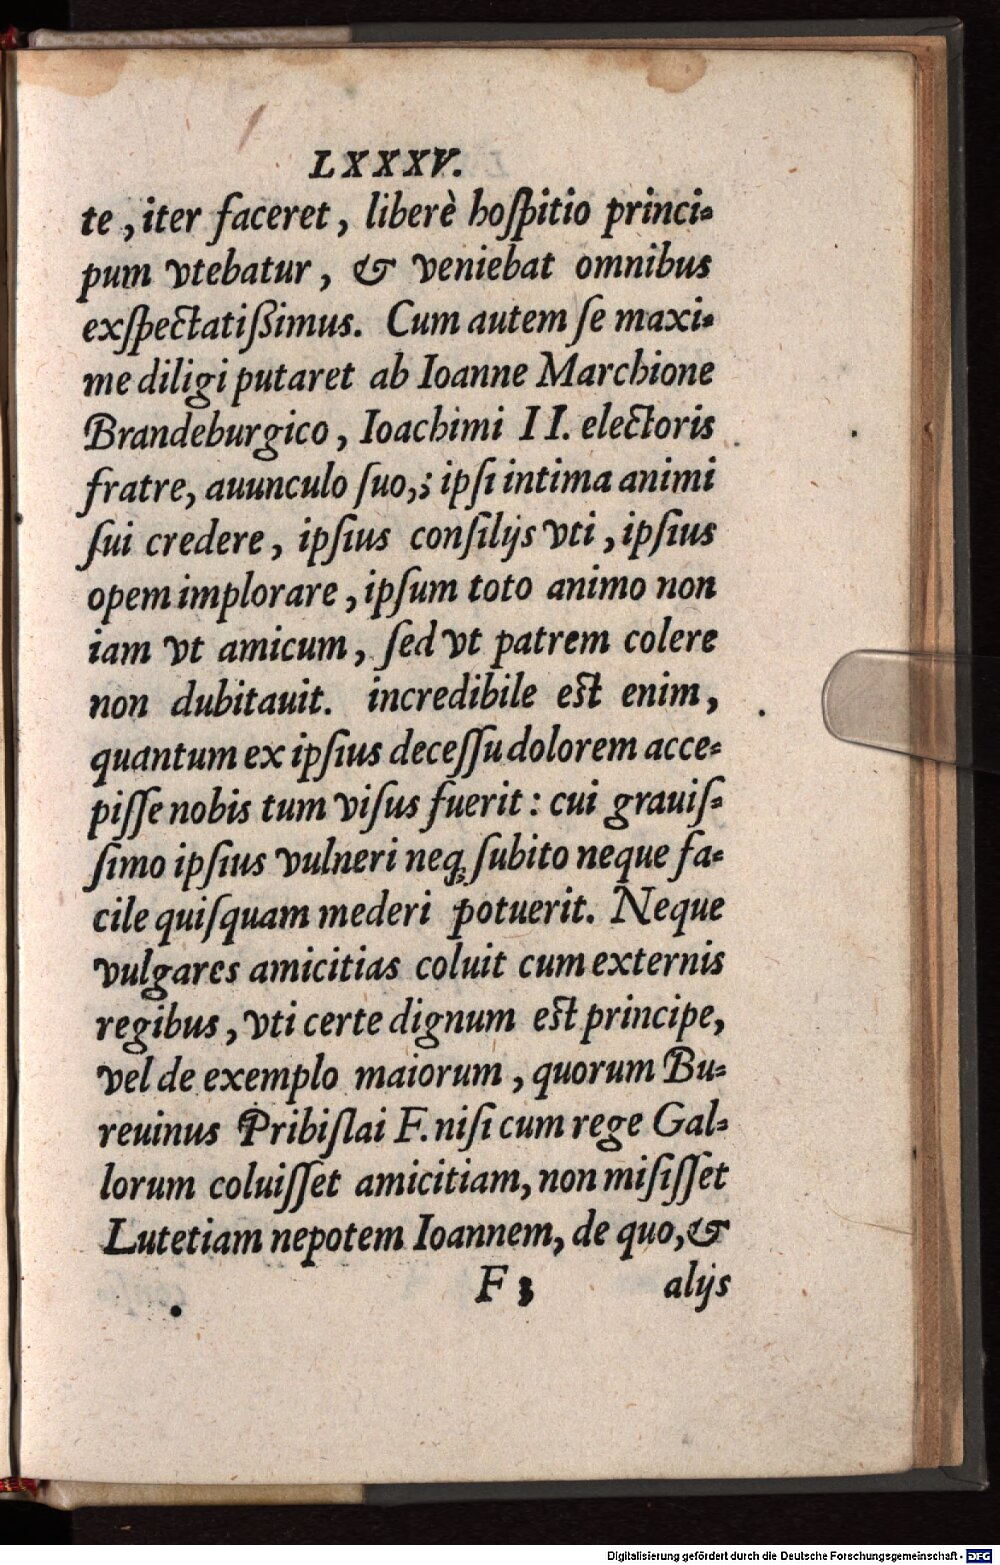 LXXXV.
te, iter faceret, liberè hoſpitio princi-
pum vtebatur, & veniebat omnibus
exſpectatißimus. Cum autem ſe maxi-
me diligi putaret ab Ioanne Marchione
Brandeburgico, Ioachimi II. electoris
fratre, auunculo ſuo,; ipſi intima animi
ſui credere, ipſius conſilijs vti, ipſius
opem implorare, ipſum toto animo non
iam vt amicum, ſed vt patrem colere
non dubitauit. incredibile est enim,
quantum ex ipſius deceſſu dolorem acce-
piſſe nobis tum viſus fuerit: cui grauiſ-
ſimo ipſius vulneri neq; ſubito neque fa-
cile quiſquam mederi potuerit. Neque
vulgares amicitias coluit cum externis
regibus, vti certe dignum est principe,
vel de exemplo maiorum, quorum Bu-
reuinus Pribiſlai F. niſi cum rege Gal-
lorum coluiſſet amicitiam, non miſiſſet
Lutetiam nepotem Ioannem, de quo, &
F 3 alijs
Digitalisierung gefördert durch die Deutsche Forschungsgemeinschaft - DFG